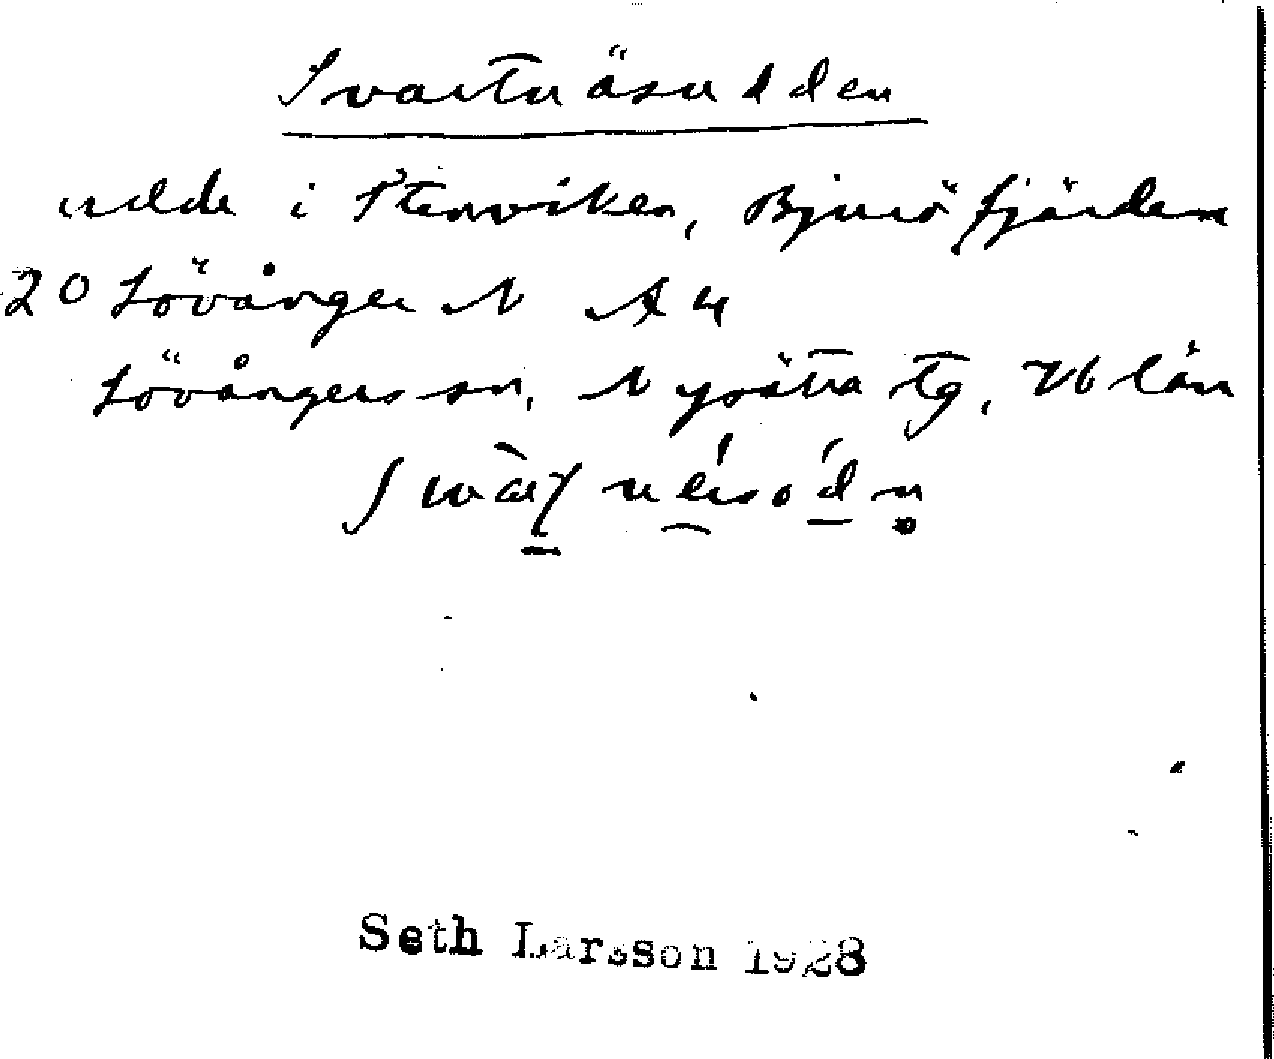 Svartnäsudden
udde i Stenviken, Bjuröfjärden
20 Lövånger N A 4
Lövångers sn, Nysätra tg, Vb län
Seth Larsson 1928